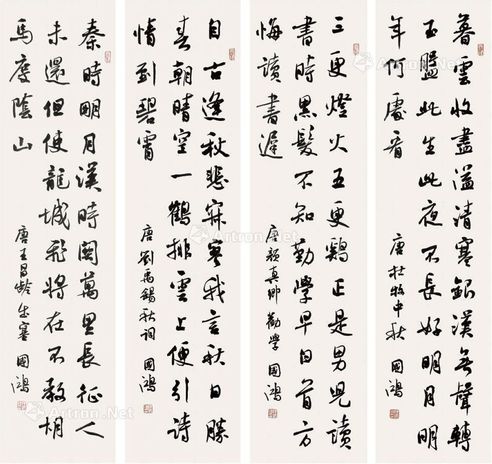 暮雲收盡溢清寒銀漢無聲轉
玉盤此生此夜不長好明月明
年何處看
唐杜牧中秋 國鴻
三更燈火五更鷄正是男兒讀
書時黑髮不知勤學早白首方
悔讀書遲
唐顏真卿勸學 國鴻
自古逢秋悲寂寥我言秋日勝
春朝晴空一鶴排雲上便引詩
情到碧霄
唐劉禹錫秋詞 國鴻
秦時明月漢時關萬里長征人
未還但使龍城飛將在不教胡
馬度陰山
唐王昌齡出塞 國鴻
Artron.Net
Artron.Net
Artron.Net
Artron.Net